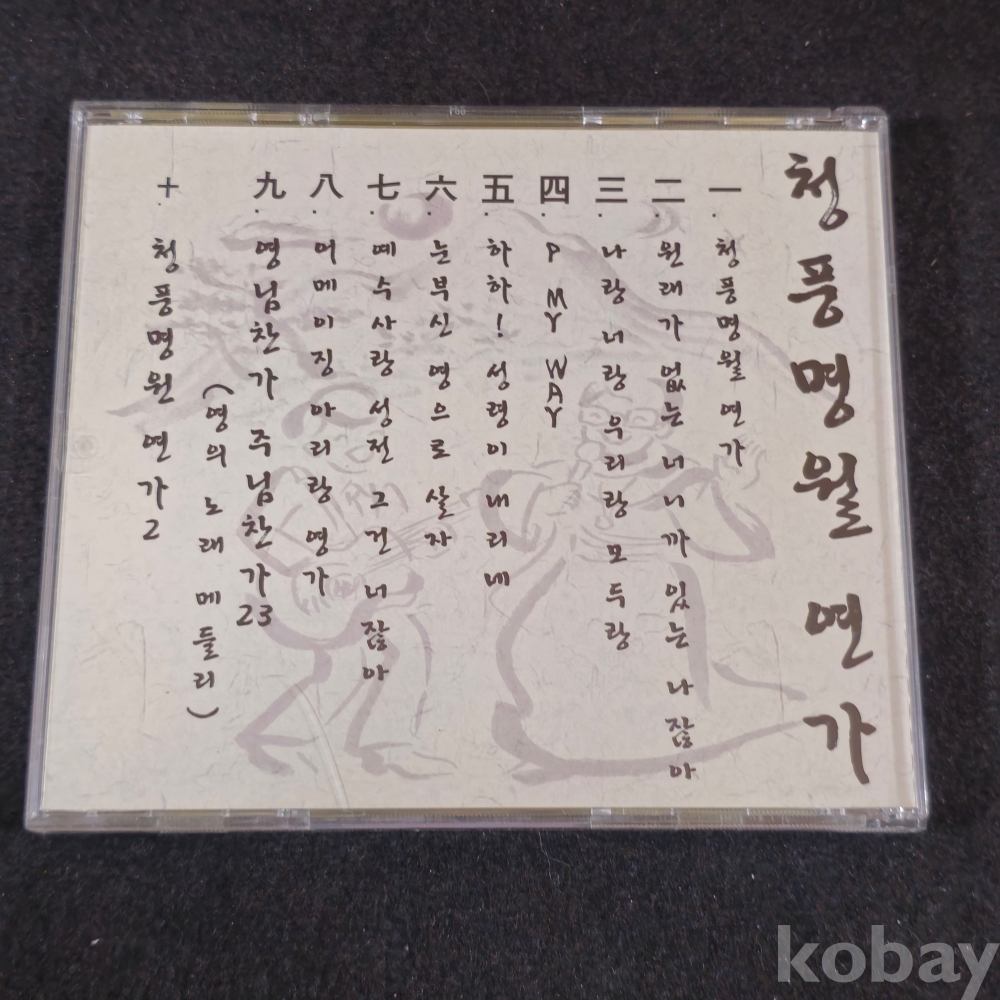 청풍명월 연가
一. 청풍명월 연가
二. 원래가 없는 너니까 있는 나잖아
三. 나랑 너랑 우리랑 모두랑
四. P MY WAY
五. 하하! 성령이 내리네
六. 눈부신 영으로 살자
七. 예수사랑 성전 그건 너잖아
八. 어메이징 아리랑 영가
九. 영님찬가 주님찬가23
(영의 노래 메들리)
十. 청풍명월 연가2
kobay